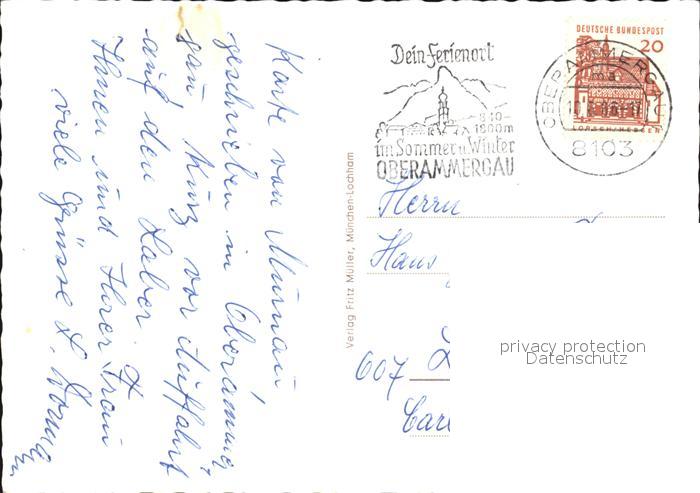 Karte von Murnau,
geschrieben in Oberammer,
gau kurz vor Auffahrt
auf den Laber
Ihnen und Ihrer Frau
viele Grüsse
Dein Ferienort
840-
1800m
im Sommer u. Winter
OBERAMMERGAU
DEUTSCHE BUNDESPOST
20
OBERAMMERGAU
8103
LORSCH/HESSEN
Verlag Fritz Müller, München-Lochham
Herrn
Hans
607
Carl
privacy protection
Datenschutz